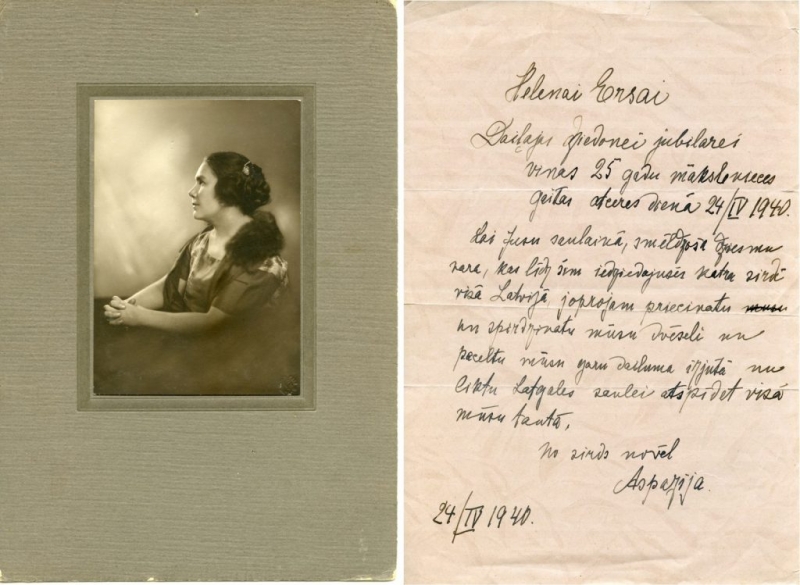 Helenai Ersai
Daiļajai dziedonei jubilarei
viņas 25 gadu mākslinieces
gaitas atceres dienā 24/IV 1940.
Lai Jūsu saulainā, smeldzošā dziesmu
vara, kas līdz šim iedziedājusēs katrā sirdī
visā Latvijā, joprojām priecinātu
un spirdzinātu mūsu dvēseli un
paceltu mūsu garu daiļuma izjūtā un
liktu Latgales saulei atspīdēt visā
mūsu tautā.
No sirds novēl
Aspazija.
24/IV 1940.